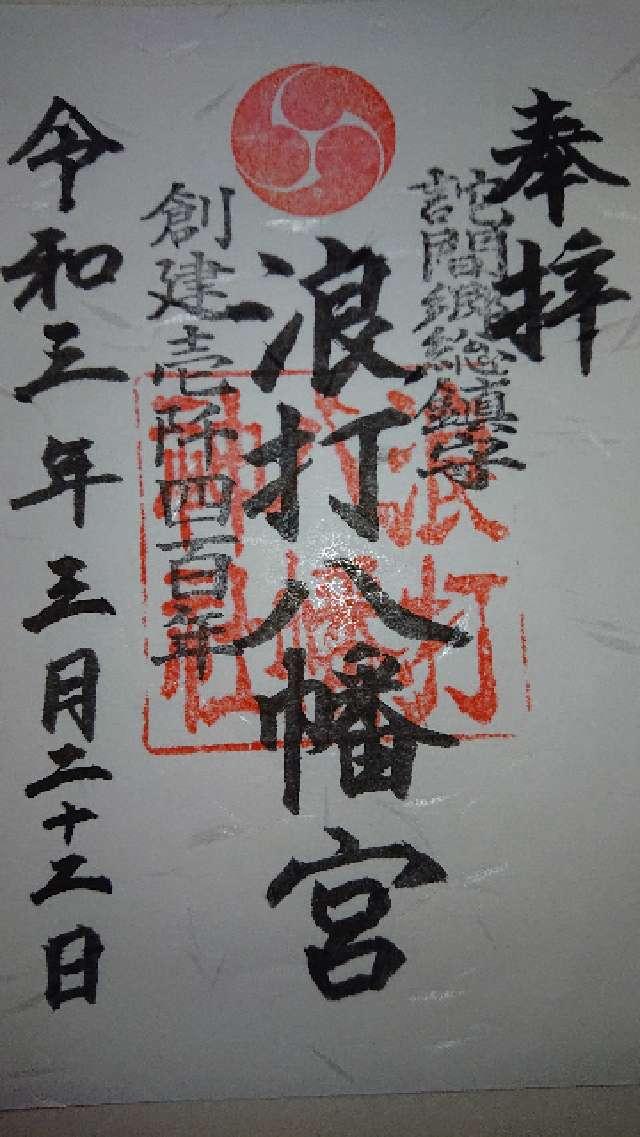 奉拝
詫間郷総鎮守
浪打八幡宮
浪打
八幡
神社
創建壱阡四百年
令和三年三月二十二日